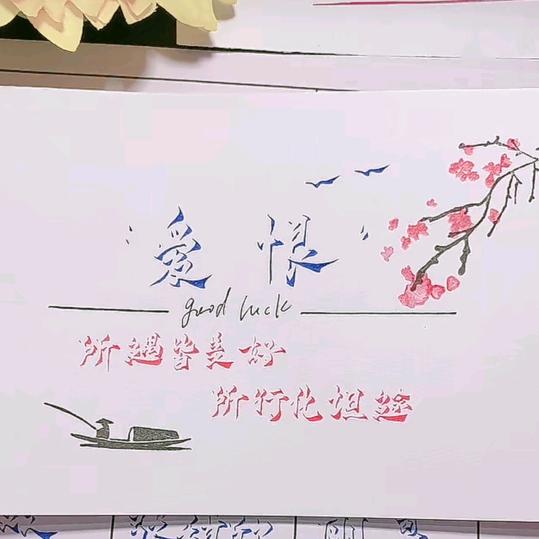 “爱恨”
good luck
所遇皆美好
所行化坦途